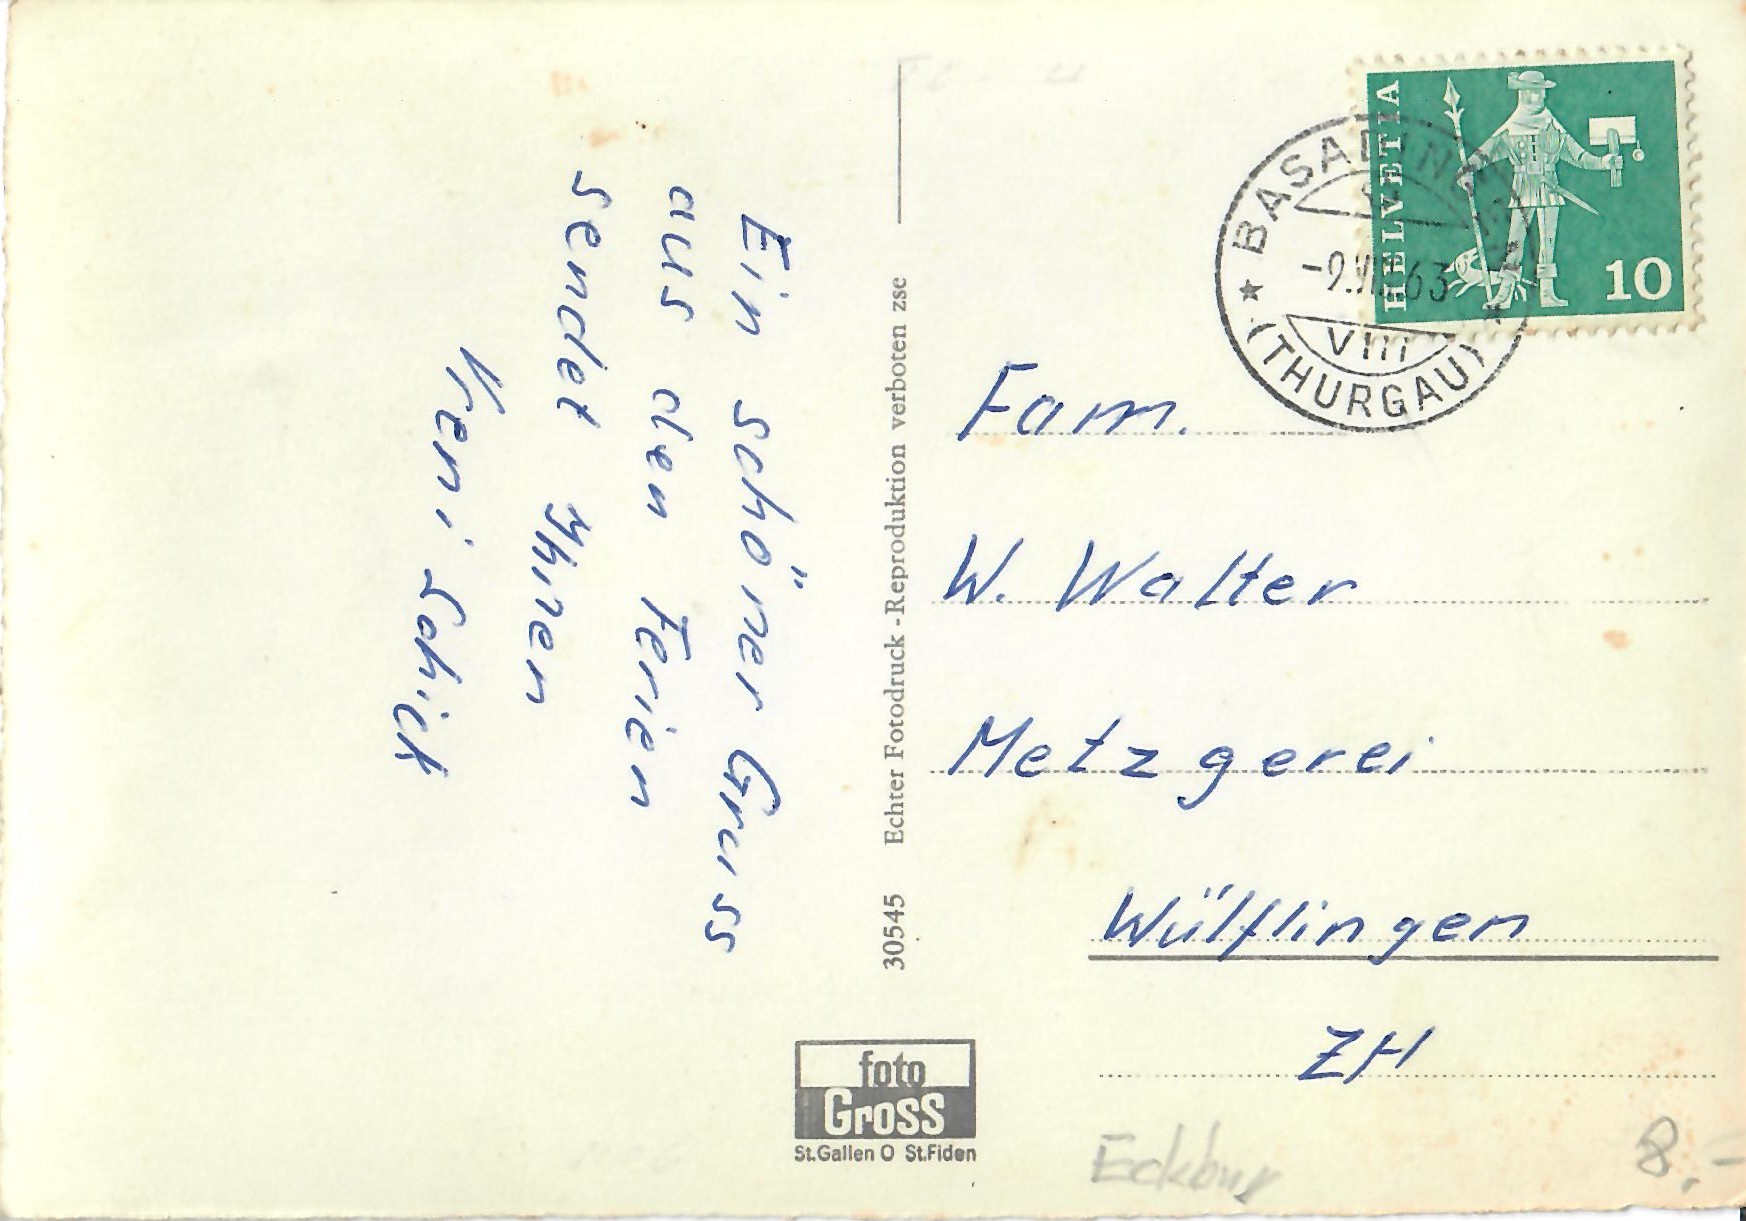 Ein schöner Gruss
aus den Ferien
sendet Ihnen
Vreni Schick
30545 Echter Fotodruck - Reproduktion verboten zse
foto
Gross
St.Gallen O St.Fiden
HELVETIA
10
BASADINGEN
VIII
(THURGAU)
Fam.
W. Walter
Metzgerei
Wülflingen
ZH
8.-